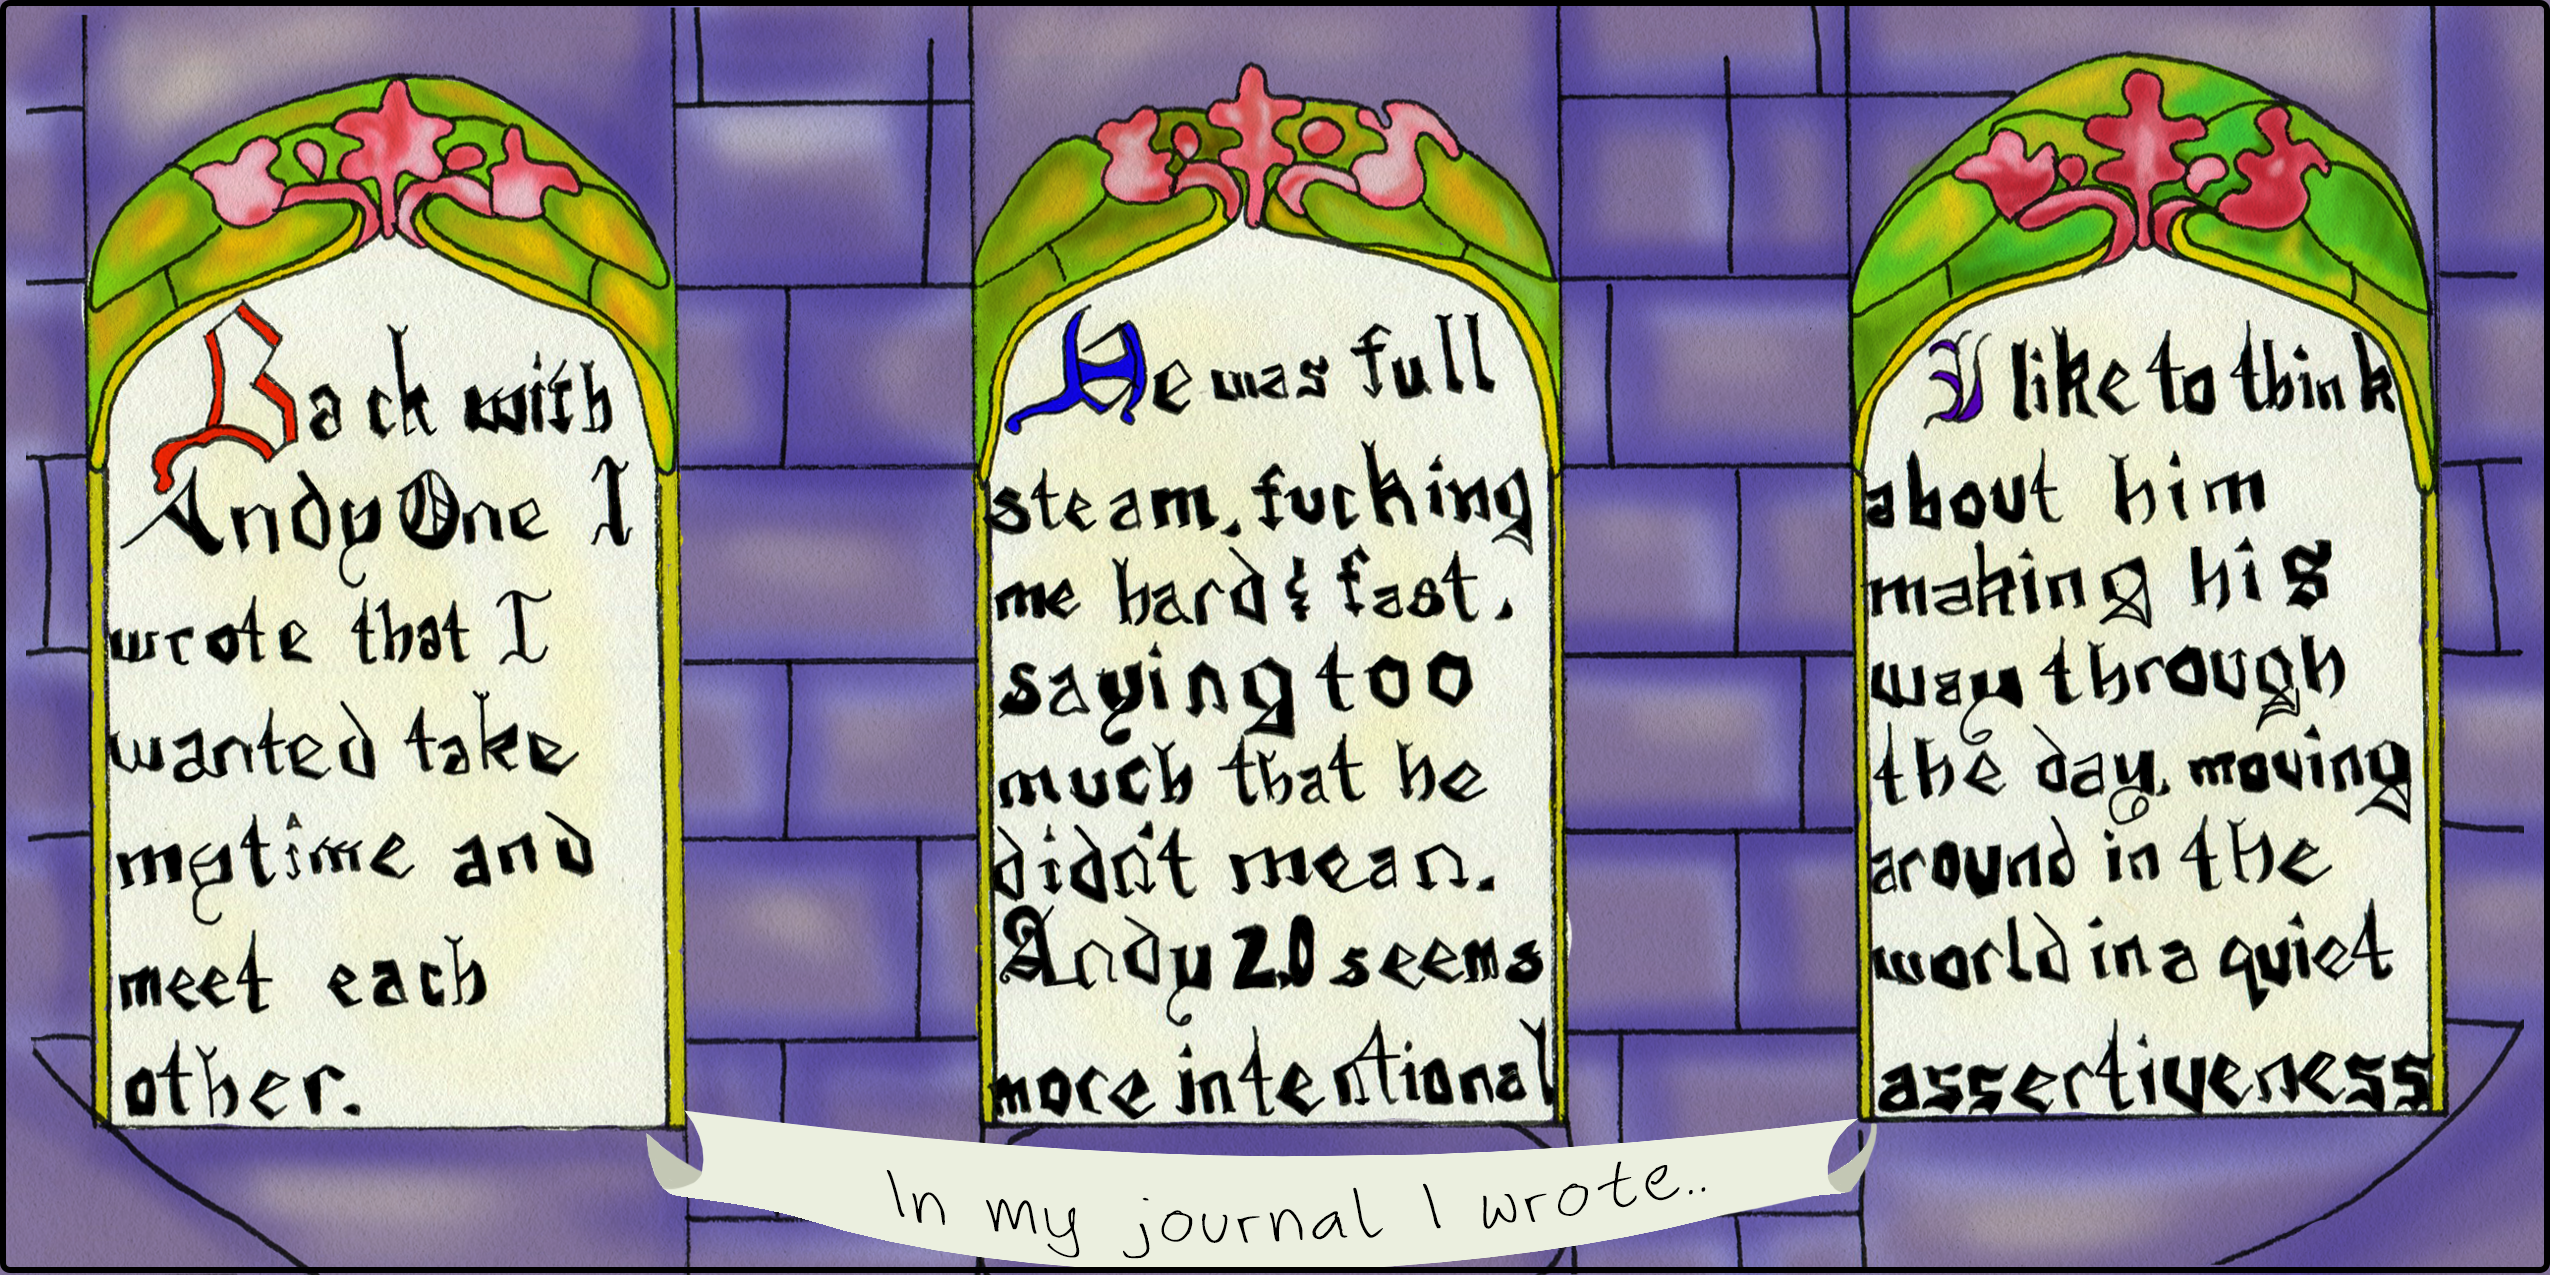 Back with
Andy One I
wrote that I
wanted take
my time and
meet each
other.
He was full
steam, fucking
me hard & fast,
saying too
much that he
didn't mean.
Andy 2.0 seems
more intentional
I like to think
about him
making his
way through
the day, moving
around in the
world in a quiet
assertiveness
In my journal I wrote..